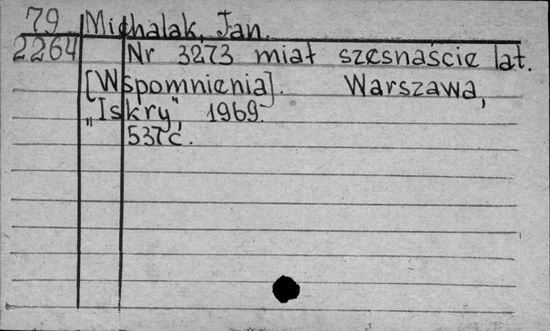 79 Michalak, Jan.
2264 Nr 3273 miał szesnaście lat.
[Wspomnienia]. Warszawa,
„Iskry", 1969.
537 c.